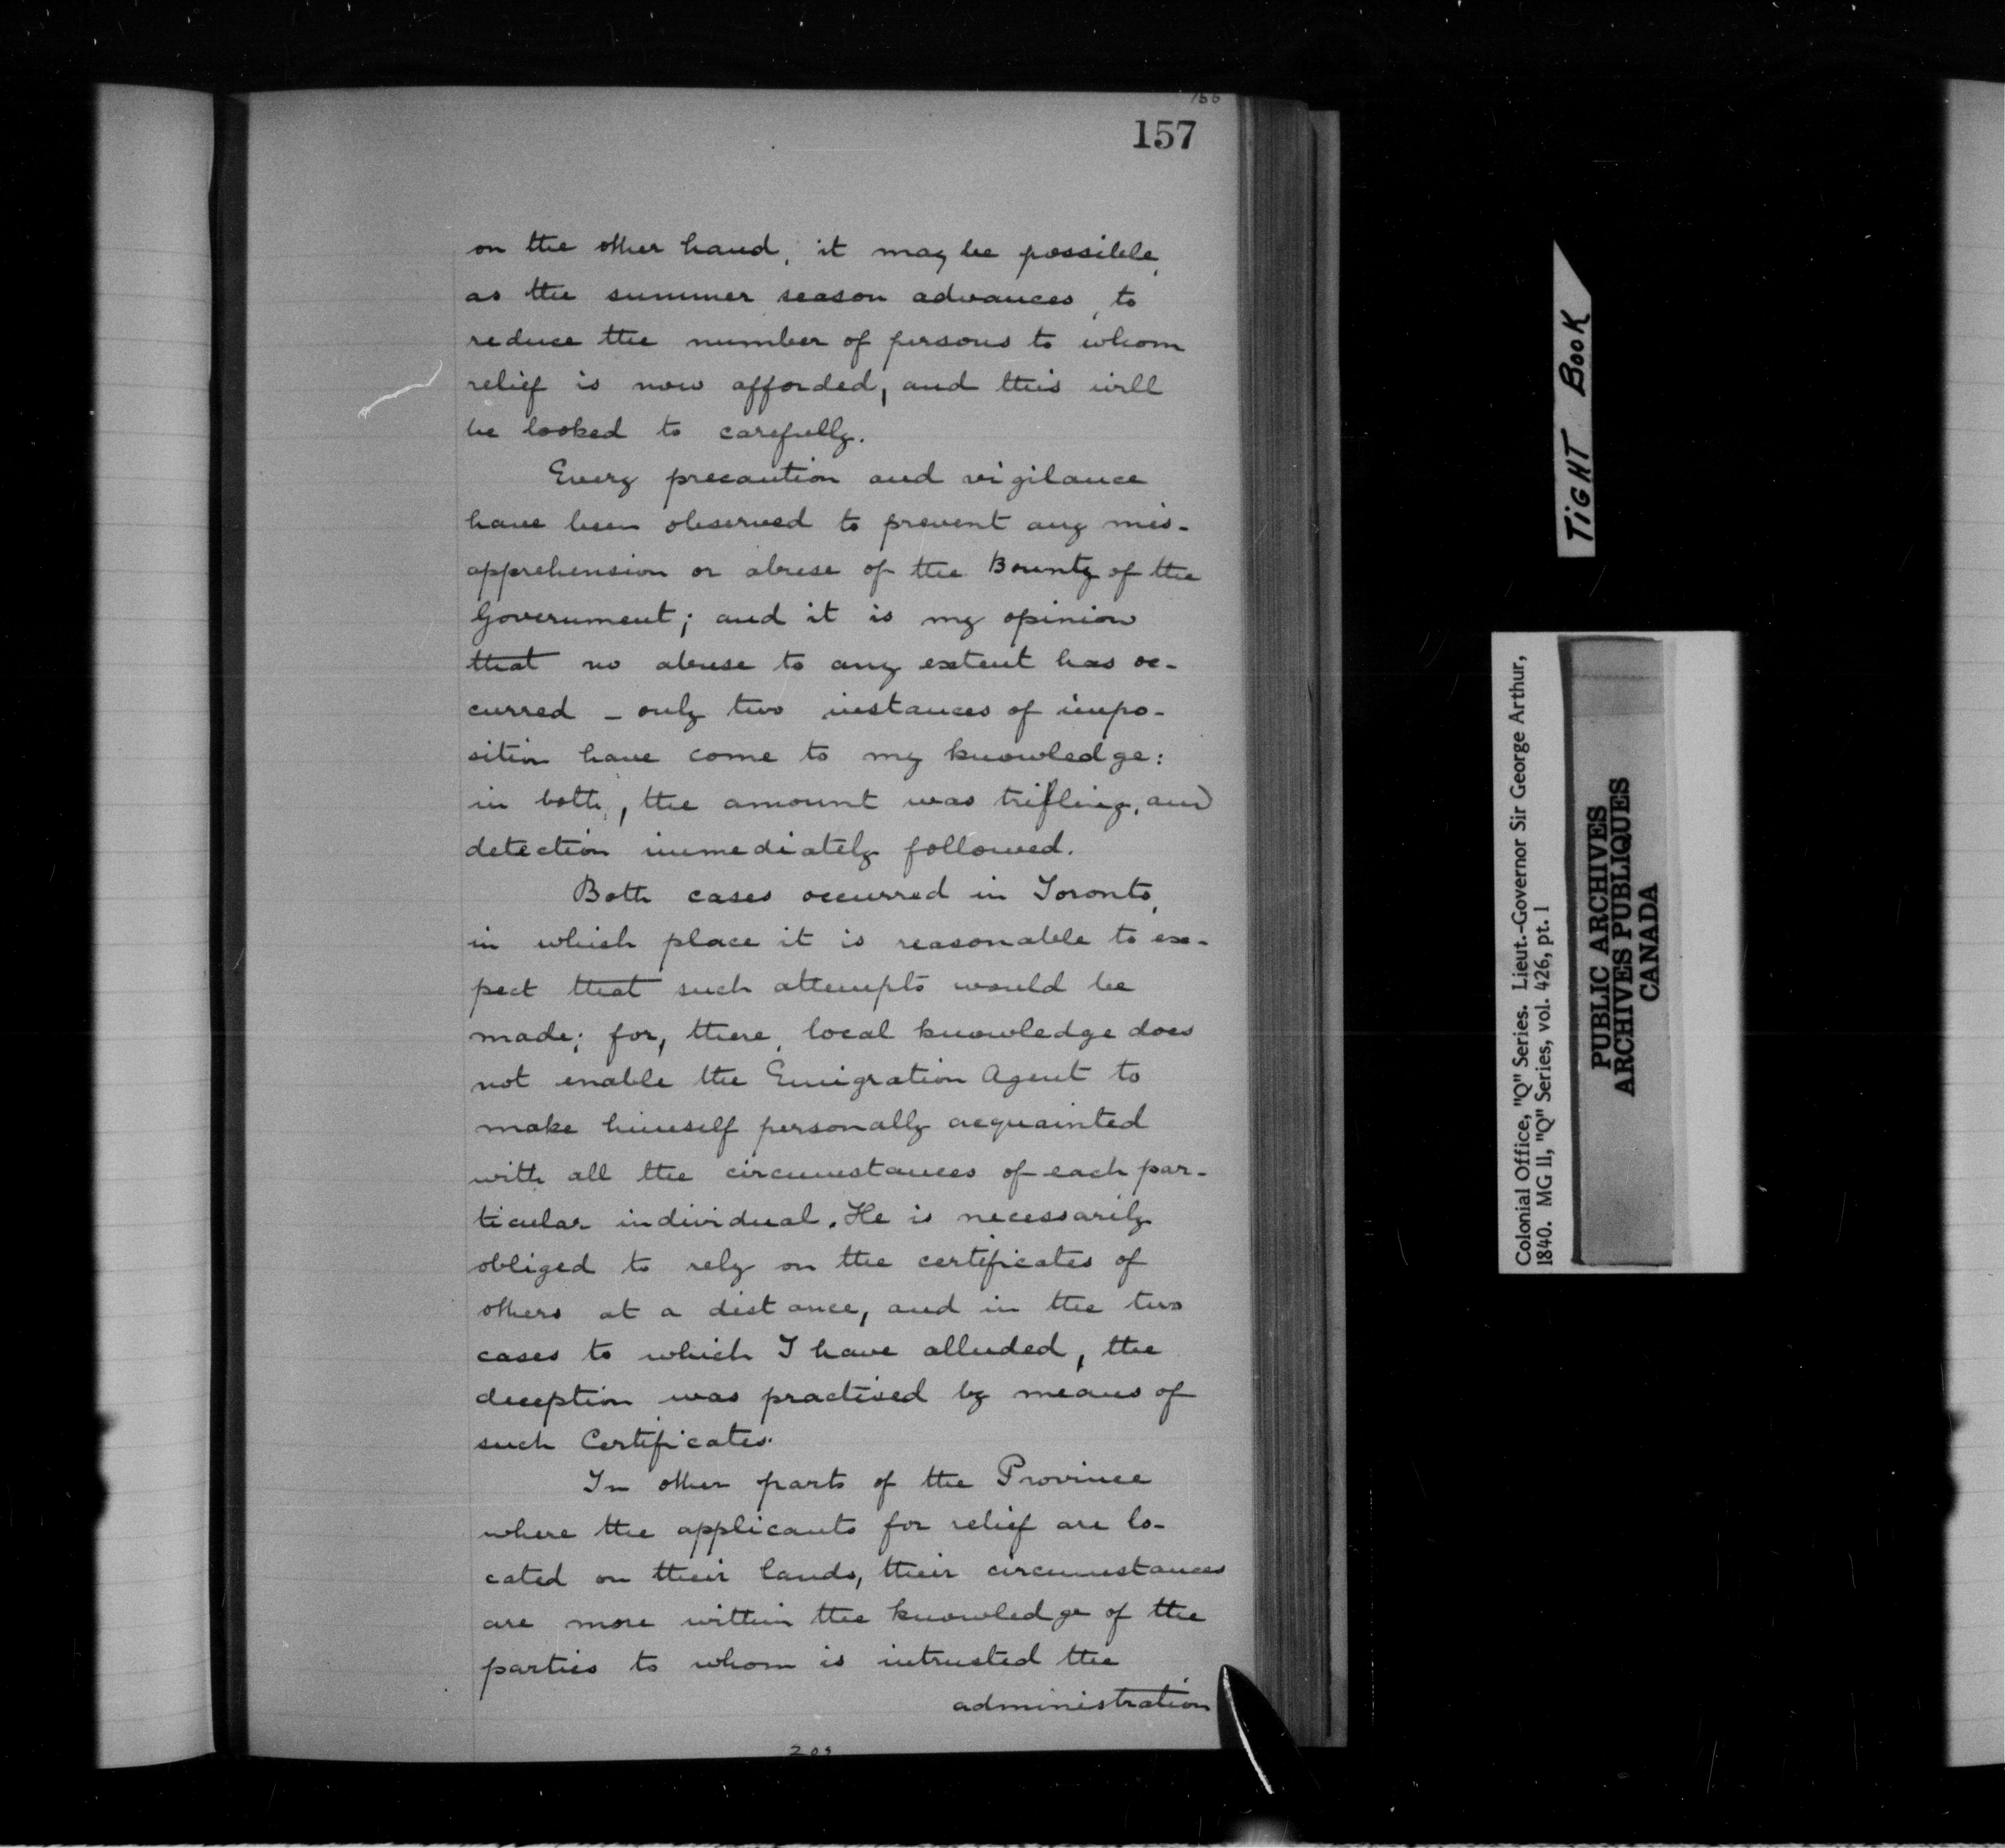 156
157
on the other hand, it may be possible,
as the summer season advances, to
reduce the number of persons to whom
relief is now afforded, and this will
be looked to carefully.
Every precaution and vigilance
have been observed to prevent any mis-
apprehension or abuse of the Bounty of the
Government; and it is my opinion
that no abuse to any extent has oc-
curred - only two instances of impo-
sition have come to my knowledge:
in both, the amount was trifling, and
detection immediately followed.
Both cases occurred in Toronto,
in which place it is reasonable to ex-
pect that such attempts would be
made; for, there, local knowledge does
not enable the Emigration Agent to
make himself personally acquainted
with all the circumstances of each par-
ticular individual. He is necessarily
obliged to rely on the certificates of
others at a distance, and in the two
cases to which I have alluded, the
deception was practised by means of
such Certificates.
In other parts of the Province
where the applicants for relief are lo-
cated on their lands, their circumstances
are more within the knowledge of the
parties to whom is intrusted the
administration
TIGHT BOOK
Colonial Office, "Q" Series. Lieut.-Governor Sir George Arthur,
1840. MG 11, "Q" Series, vol. 426, pt. 1
PUBLIC ARCHIVES
ARCHIVES PUBLIQUES
CANADA